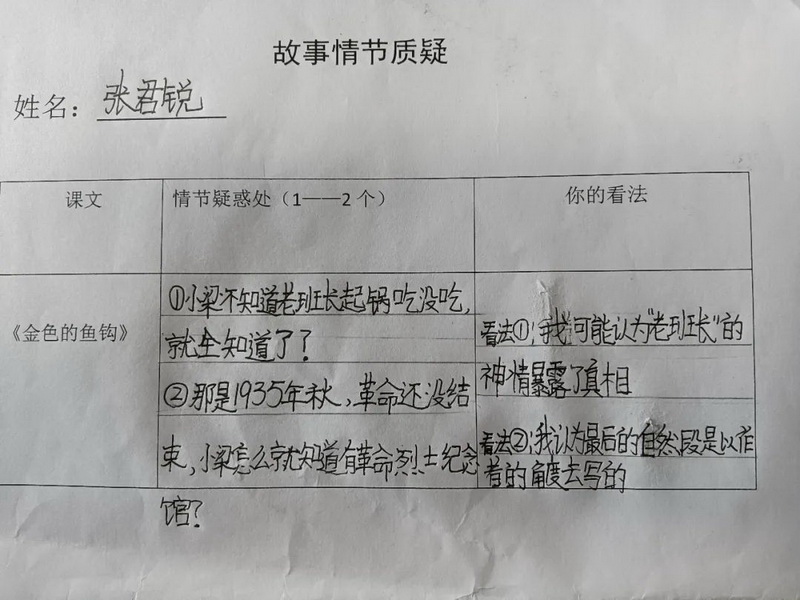 故事情节质疑
姓名：张君锐
课文
情节疑惑处（1——2个）
你的看法
《金色的鱼钩》
①小梁不知道老班长起锅吃没吃，
就全知道了？
②那是1935年秋，革命还没结
束，小梁怎么就知道有革命烈士纪念
馆？
看法①：我可能认为“老班长”的
神情暴露了真相
看法②：我认为最后的自然段是以作
者的角度去写的